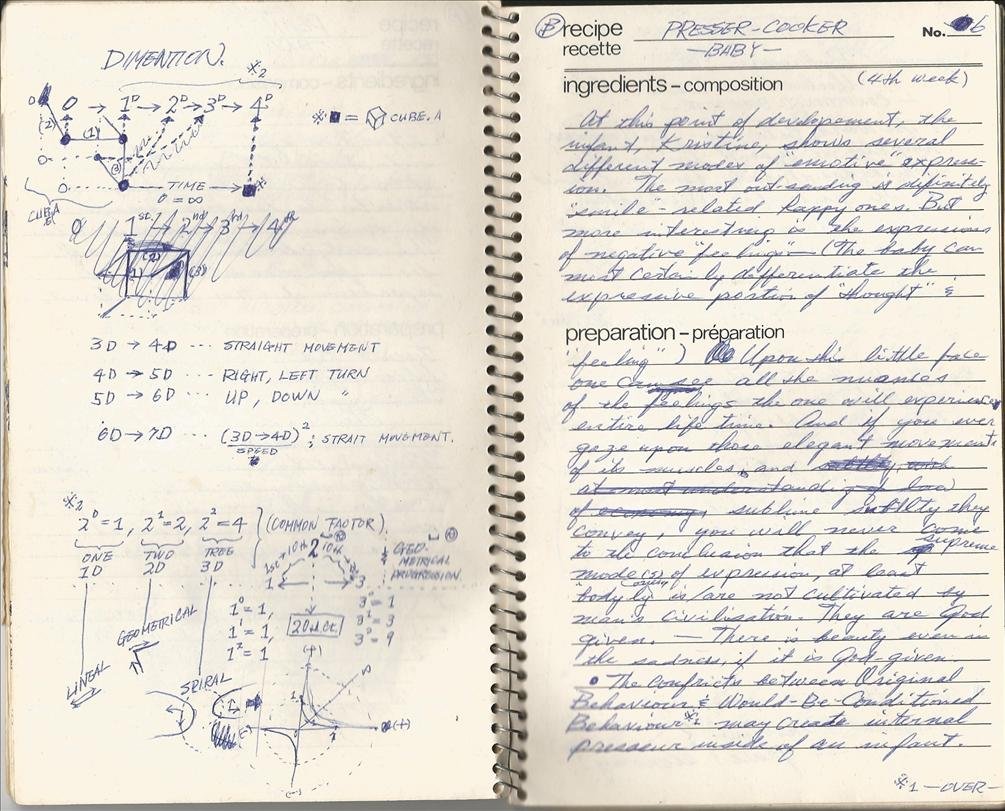 DIMENTION.
※2
0 → 1D → 2D → 3D → 4D
※■ = CUBE.A
(2)
(1)
(3)
TIME
0 = ∞
CUBE A
0 1st → 2nd → 3rd → 4th
(2)
(1)
(3)
3D → 4D ... STRAIGHT MOVEMENT
4D → 5D ... RIGHT, LEFT TURN
5D → 6D ... UP, DOWN "
6D → 7D ... (3D → 4D)² ; STRAIT MOVEMENT.
SPEED
※2
2⁰=1, 2¹=2, 2²=4 (COMMON FACTOR)
ONE TWO TREE
1D 2D 3D
1st 10th 2 10th
1 3
GEO-
METRICAL
PROGRESSION
1⁰ = 1, 3⁰ = 1
1¹ = 1, 3¹ = 3
1² = 1 3² = 9
LINEAL
GEOMETRICAL
SPIRAL
(+)
(+)
(-)
(-)
recipe PRESSER-COOKER No. 6
recette -BABY-
ingredients – composition (4th week)
At this point of developement, the
infant, Kristine, shows several
different modes of "emotive" expres-
ion. The most out-sanding is definitely
"smile"-related happy ones. But
more interesting is the expressions
of negative "feeling" — (The baby can
most certainly differentiate the
expressive portion of "thought" &
preparation – préparation
"feeling") Upon this little face
one can see all the nuances
of the feelings the one will experience
entire life time. And if you ever
gaze upon those elegant movements
of its muscles, and subtlty, with
at most understanding on how
of economy, sublime subtlty they
convey, you will never come
to the conclusion that the supreme
mode(s) of expression, at least
bodyly is/are not cultivated by
man's civilisation. They are God
given. — There is beauty even in
the sadness, if it is God-given.
• The conflicts between Original
Behaviour & Would-Be-Conditioned
Behaviour ※1 may create internal
presseur inside of an infant.
※1 -OVER-